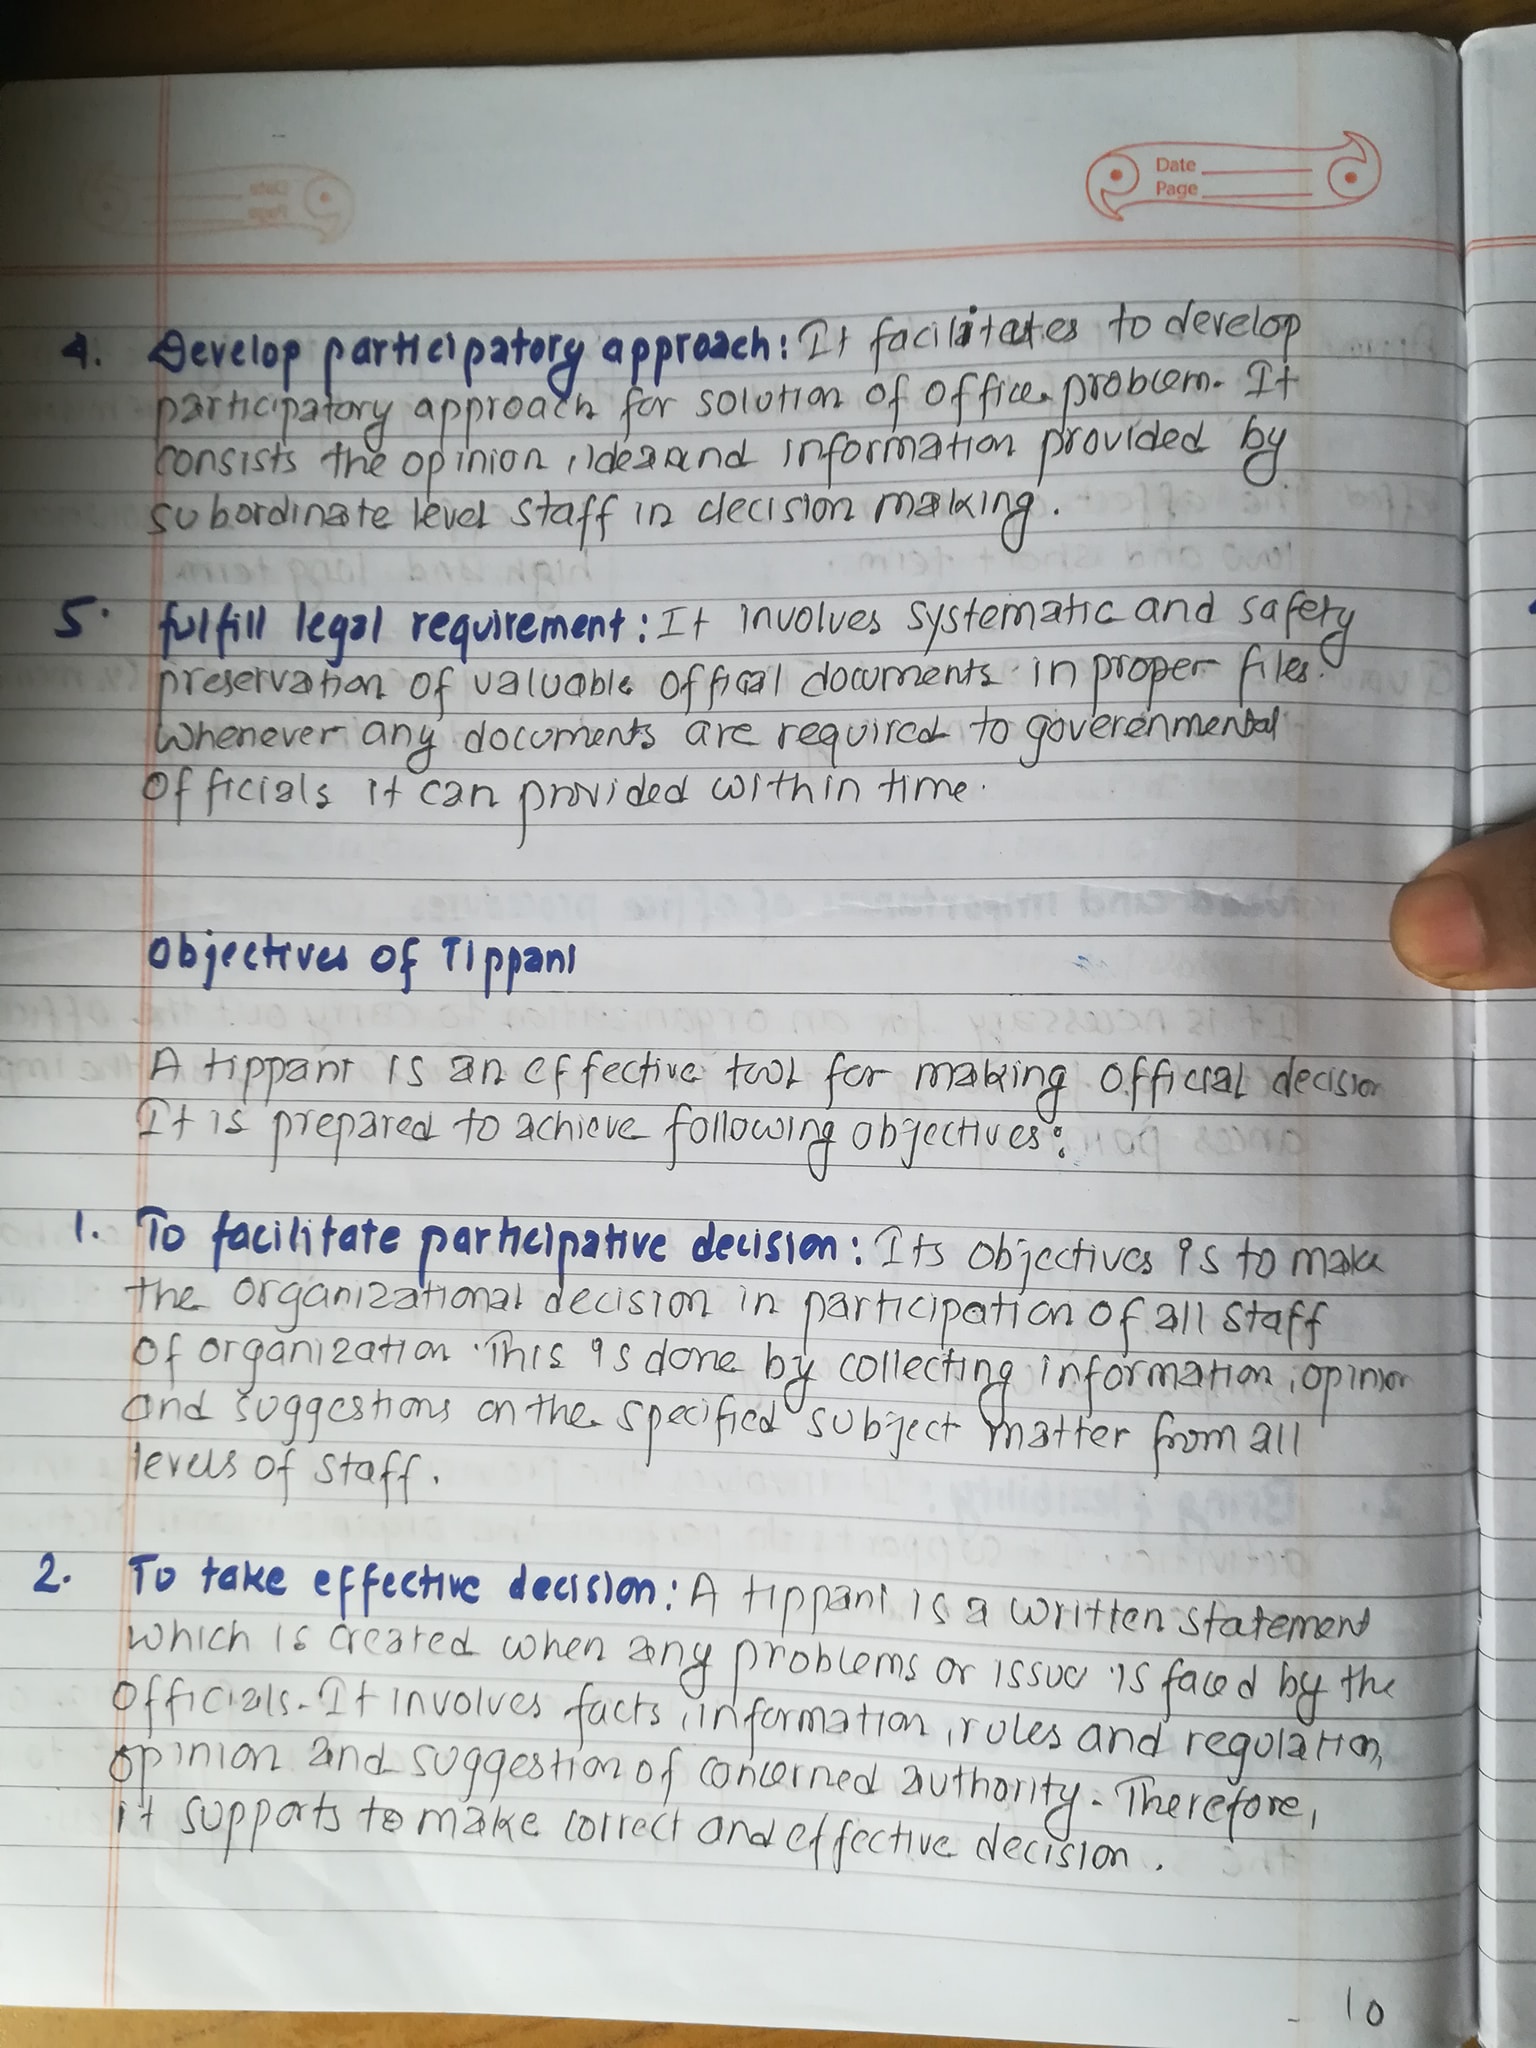 Date
Page
4. Develop participatory approach: It facilitates to develop
participatory approach for solution of office problem. It
consists the opinion, idea and information provided by
subordinate level staff in decision making.
5. fulfill legal requirement: It involves systematic and safety
preservation of valuable offical documents in proper files.
Whenever any documents are required to goverenmental
officials it can provided within time.
Objectives of Tippani
A tippani is an effective tool for making official decision
It is prepared to achieve following objectives:
1. To facilitate participative decision: Its objectives is to make
the organizational decision in participation of all staff
of organization. This is done by collecting information, opinion
and suggestions on the specified subject matter from all
levels of staff.
2. To take effective decision: A tippani is a written statement
which is created when any problems or issue is faced by the
officials. It involves facts, information, rules and regulation,
opinion and suggestion of concerned authority. Therefore,
it supports to make correct and effective decision.
10